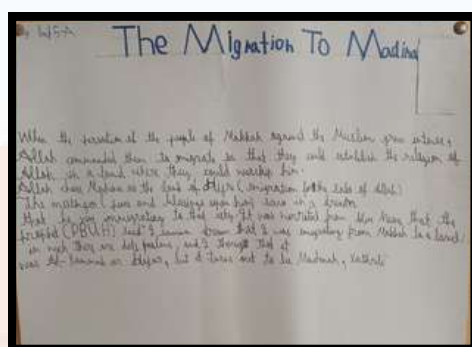 The Migration To Madina
When the persecution of the people of Makkah against the Muslims grew intense,
Allah commanded them to migrate so that they could establish the religion of
Allah, in a land where they could worship him.
Allah chose Madina as the land of Hijra (migration for the sake of Allah)
The (peace and blessings upon him) saw in a dream
that he was immigrating to this city. It was narrated from Abu Musa that the
prophet (PBUH) said I saw in a dream that I was migrating from Makkah to a land
in which there are date palms, and I thought that it
was Al-Yamamah or Hajar, but it turns out to be Madinah, Yathrib